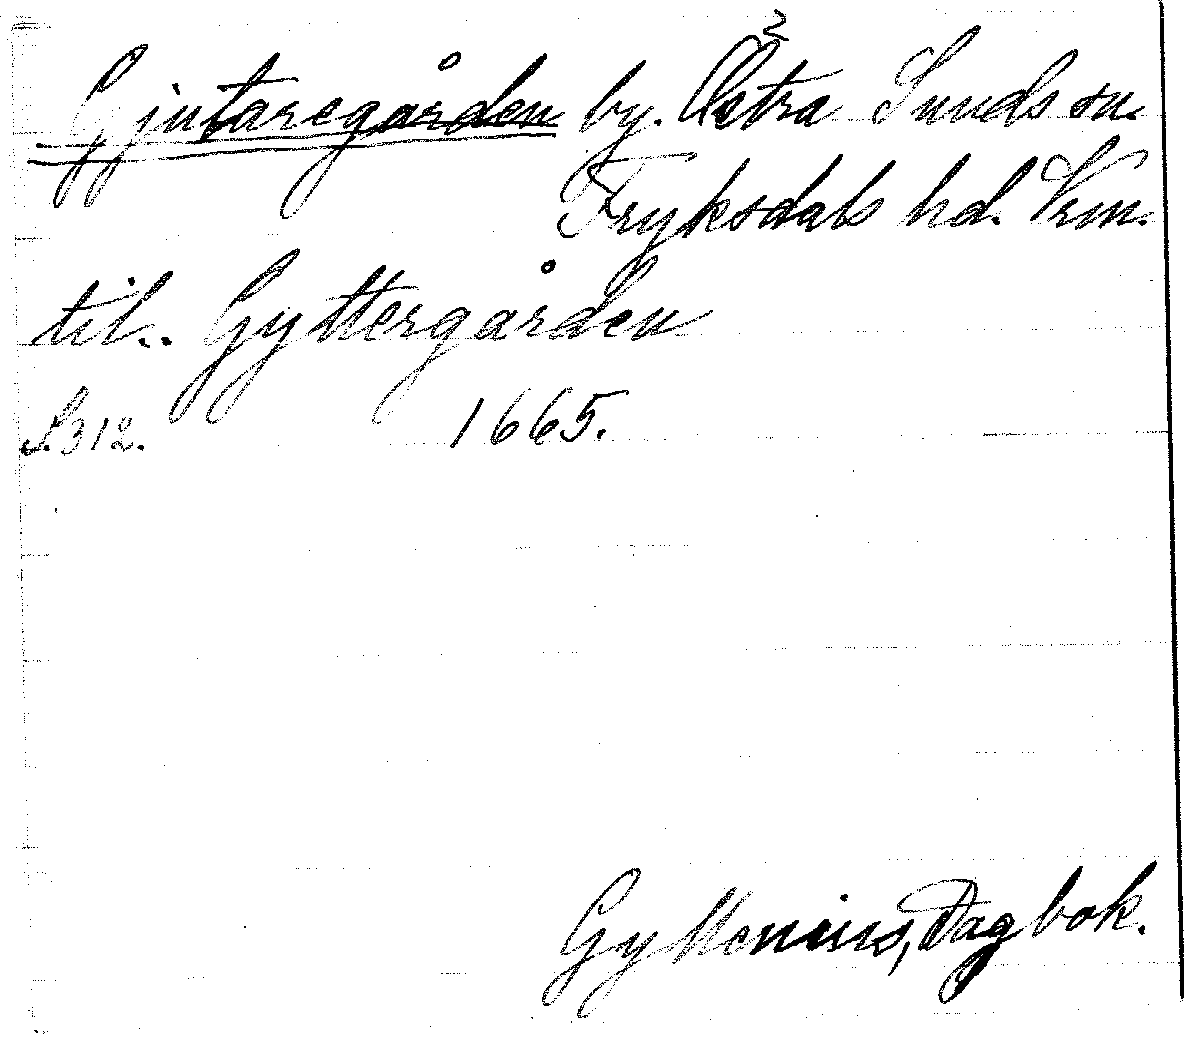 Gjutaregården by. Östra Sunds sn.
Fryksdals hd. Vrm.
til.. Gyttergården
S.312. 1665.
Gyttenius, Dagbok.